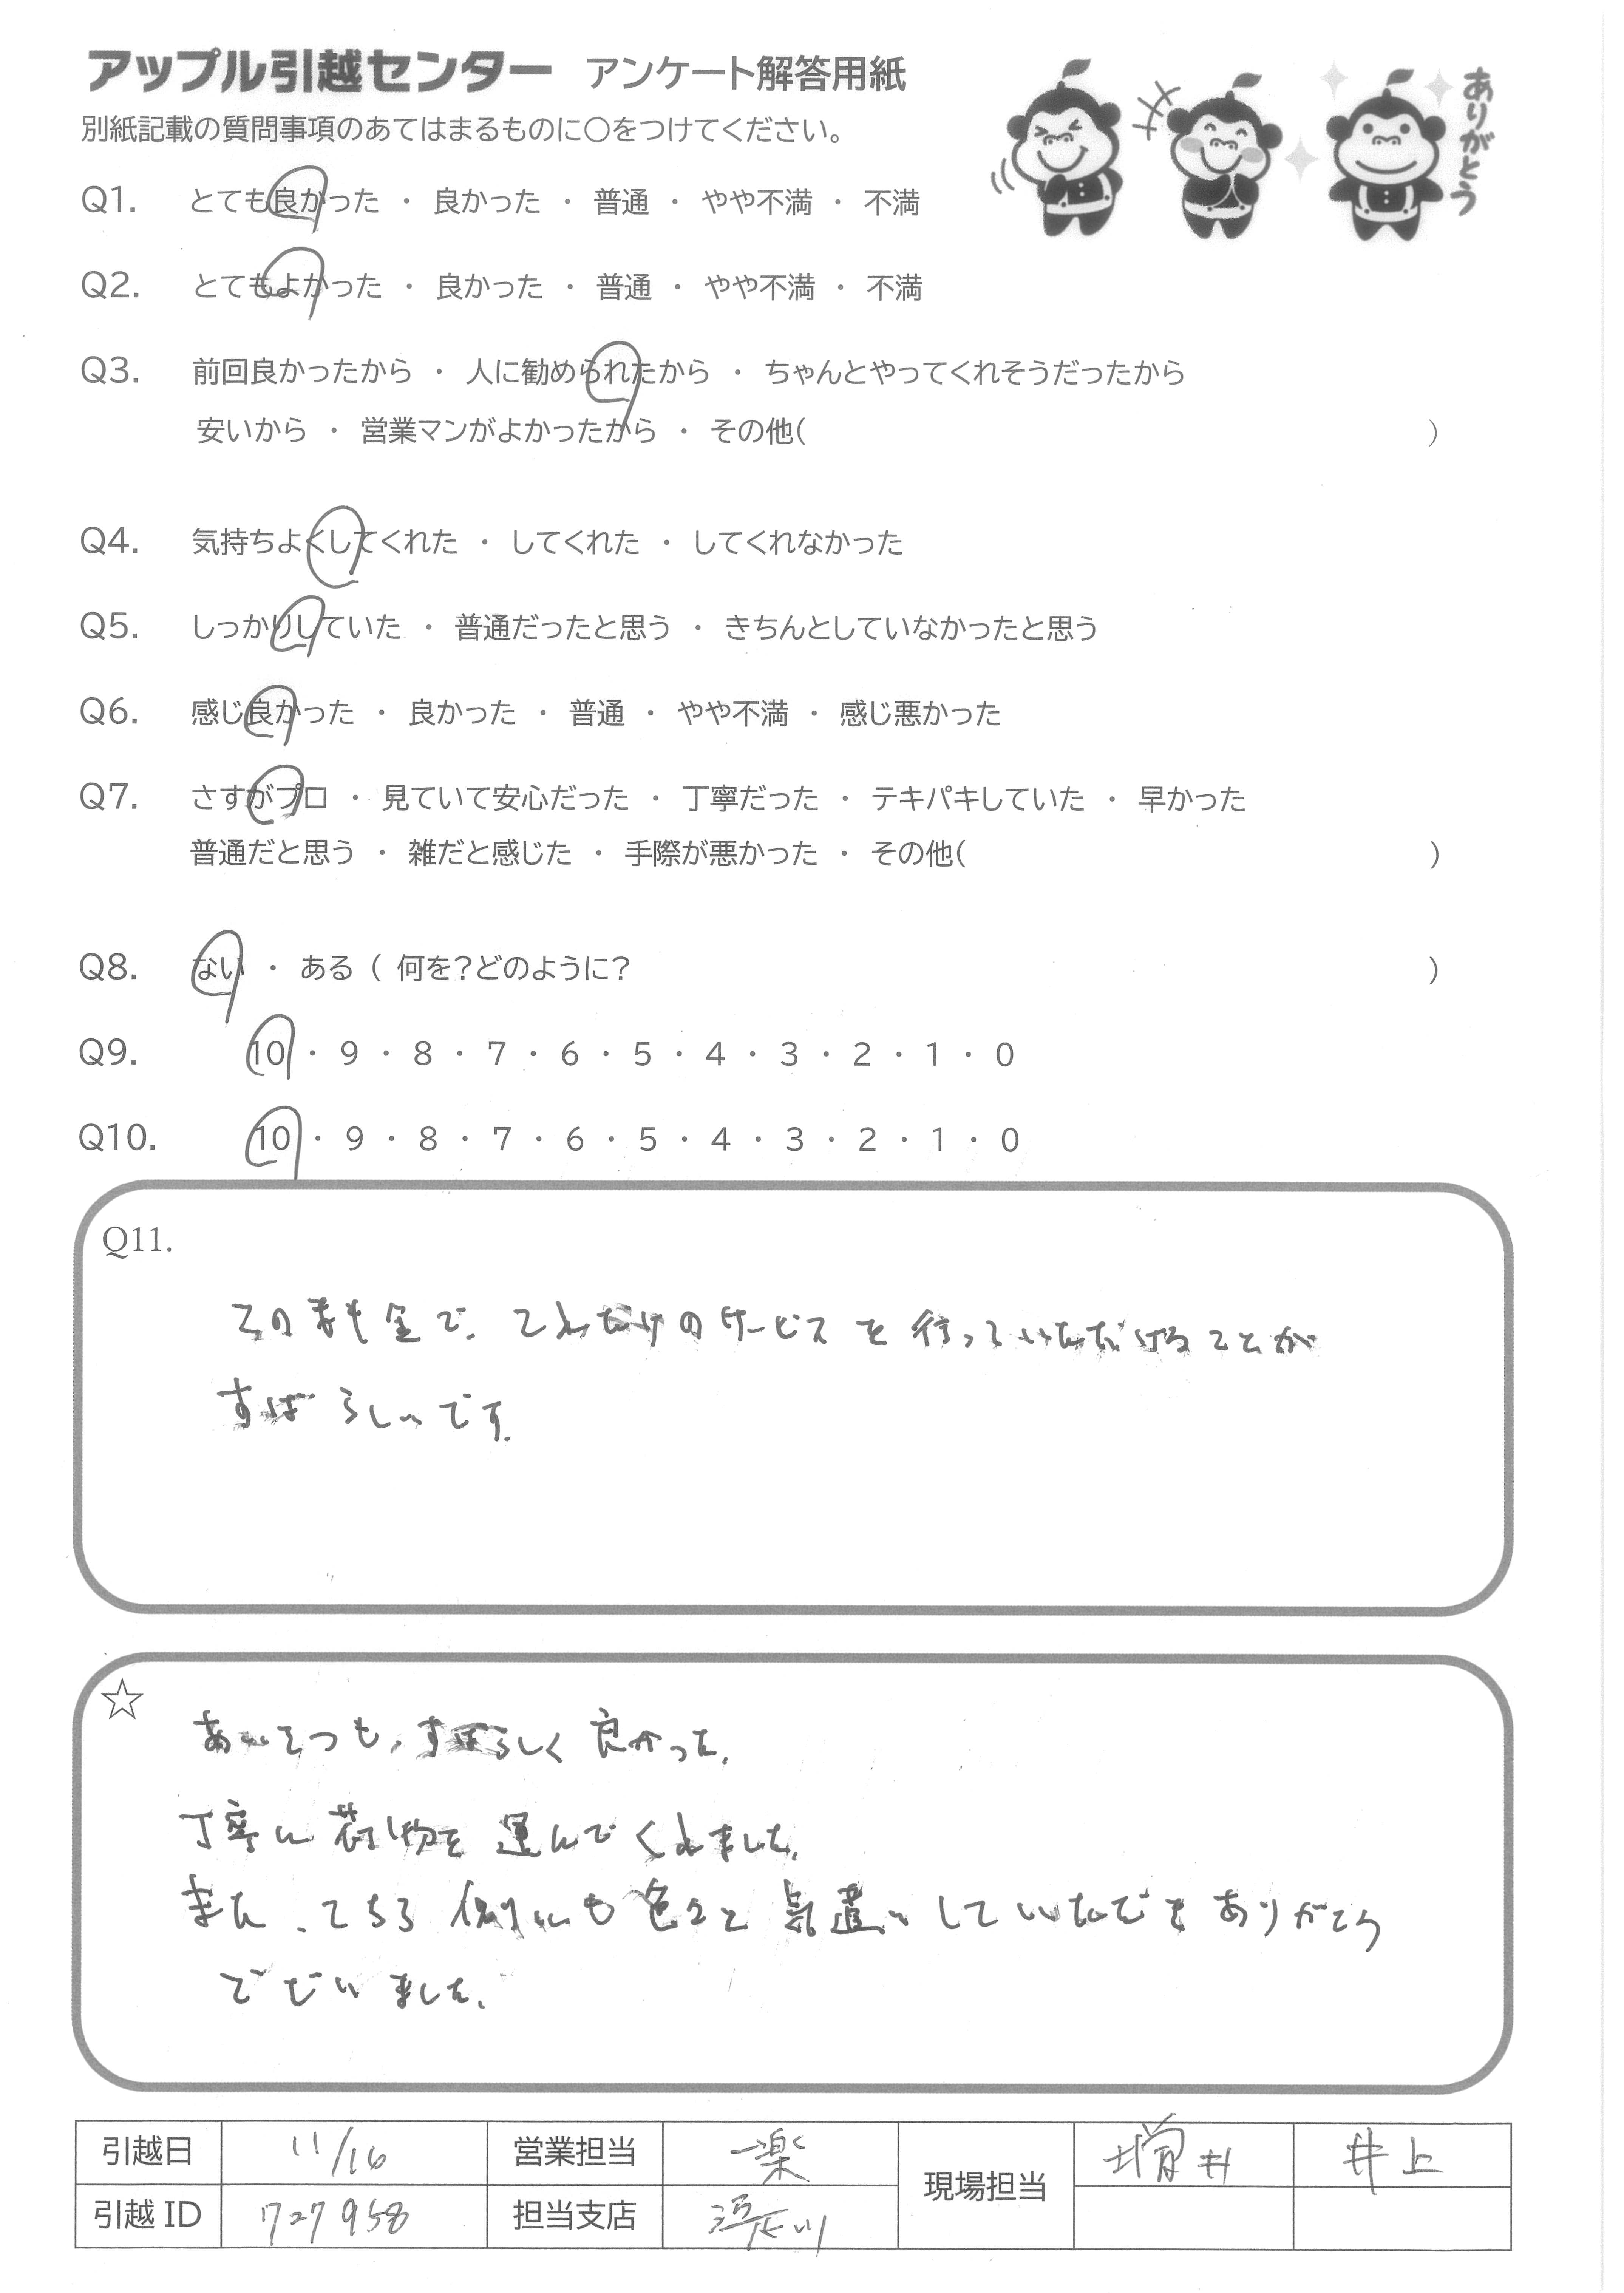 アップル引越センター アンケート解答用紙
別紙記載の質問事項のあてはまるものに○をつけてください。
ありがとう
Q1. とても良かった ・ 良かった ・ 普通 ・ やや不満 ・ 不満
Q2. とてもよかった ・ 良かった ・ 普通 ・ やや不満 ・ 不満
Q3. 前回良かったから ・ 人に勧められたから ・ ちゃんとやってくれそうだったから
安いから ・ 営業マンがよかったから ・ その他( )
Q4. 気持ちよくしてくれた ・ してくれた ・ してくれなかった
Q5. しっかりしていた ・ 普通だったと思う ・ きちんとしていなかったと思う
Q6. 感じ良かった ・ 良かった ・ 普通 ・ やや不満 ・ 感じ悪かった
Q7. さすがプロ ・ 見ていて安心だった ・ 丁寧だった ・ テキパキしていた ・ 早かった
普通だと思う ・ 雑だと感じた ・ 手際が悪かった ・ その他( )
Q8. ない ・ ある ( 何を?どのように? )
Q9. 10 ・ 9 ・ 8 ・ 7 ・ 6 ・ 5 ・ 4 ・ 3 ・ 2 ・ 1 ・ 0
Q10. 10 ・ 9 ・ 8 ・ 7 ・ 6 ・ 5 ・ 4 ・ 3 ・ 2 ・ 1 ・ 0
Q11.
この料金で、これだけのサービスを行っていただけることが
すばらしいです。
☆
あいさつも、すばらしく良かった。
丁寧に荷物を運んでくれました。
また、こちら側にも色々と気遣いしていただきありがとう
ございました。
引越日 11/16 営業担当 一楽 現場担当 増井 井上
引越ID 727958 担当支店